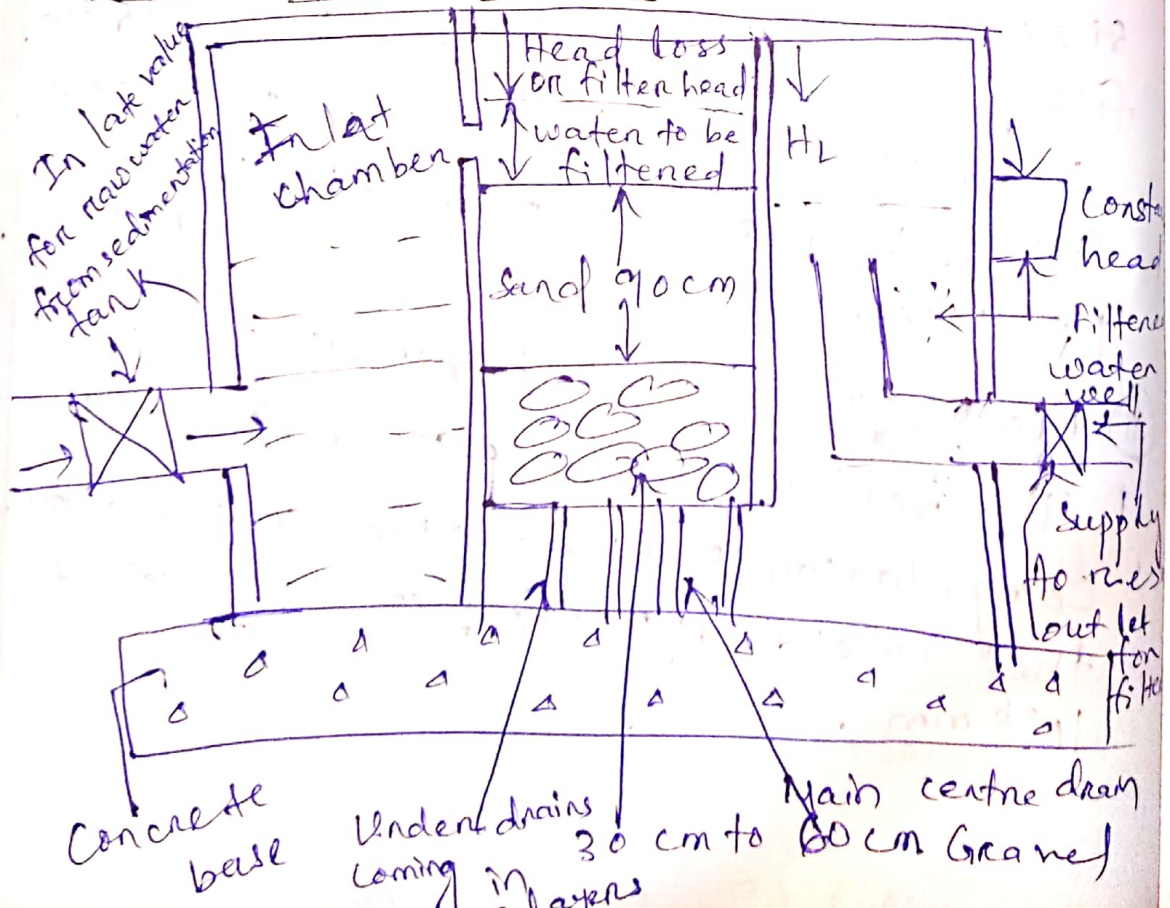 In late value
for raw water
from sedimentation
tank
Inlat
chamber
Head loss
on filter head
water to be
filtered
HL
Sand 90 cm
Const
head
filtere
water
well
Supply
to res
outlet
for
filte
Concrete
base
Under drains
coming in
layers
30 cm to 60 cm Gravel
Main centre drain